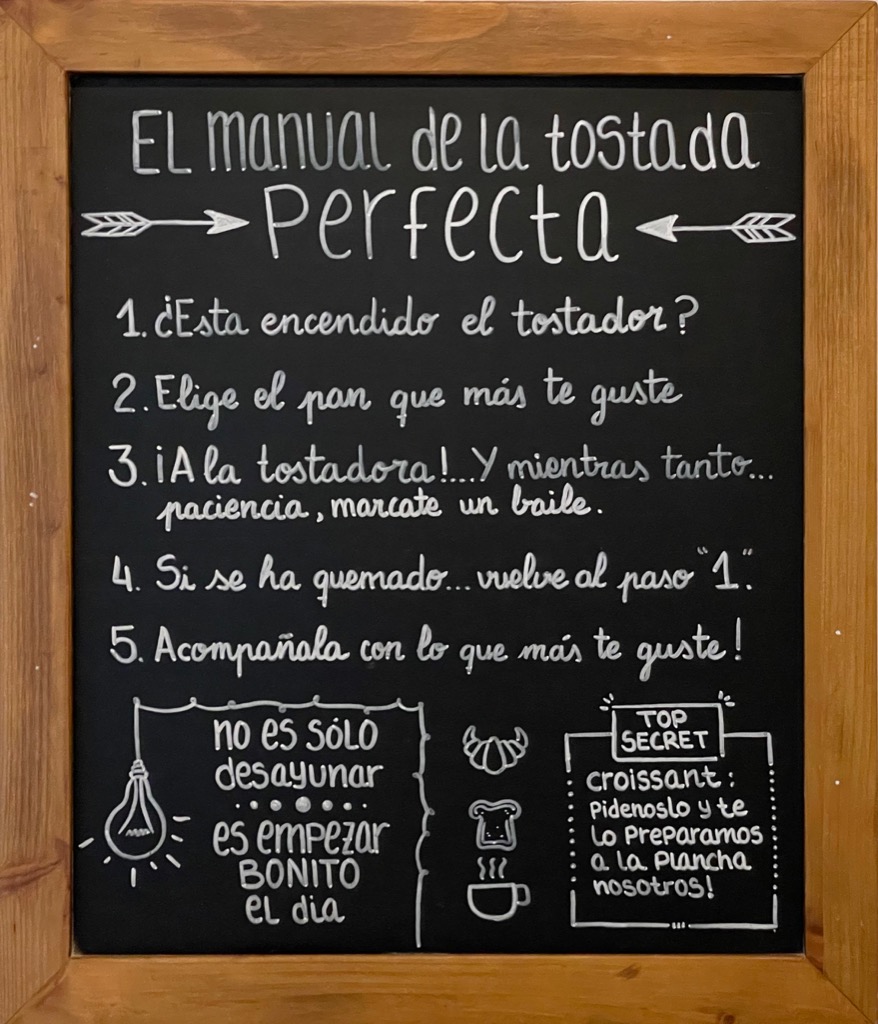 EL manual de la tostada
Perfecta
1. ¿Esta encendido el tostador?
2. Elige el pan que más te guste
3. ¡A la tostadora!...Y mientras tanto...
paciencia, marcate un baile.
4. Si se ha quemado... vuelve al paso "1".
5. Acompañala con lo que más te guste!
no es sólo
desayunar
es empezar
BONITO
el dia
TOP
SECRET
croissant:
Pidenoslo y te
lo preparamos
a la plancha
nosotros!